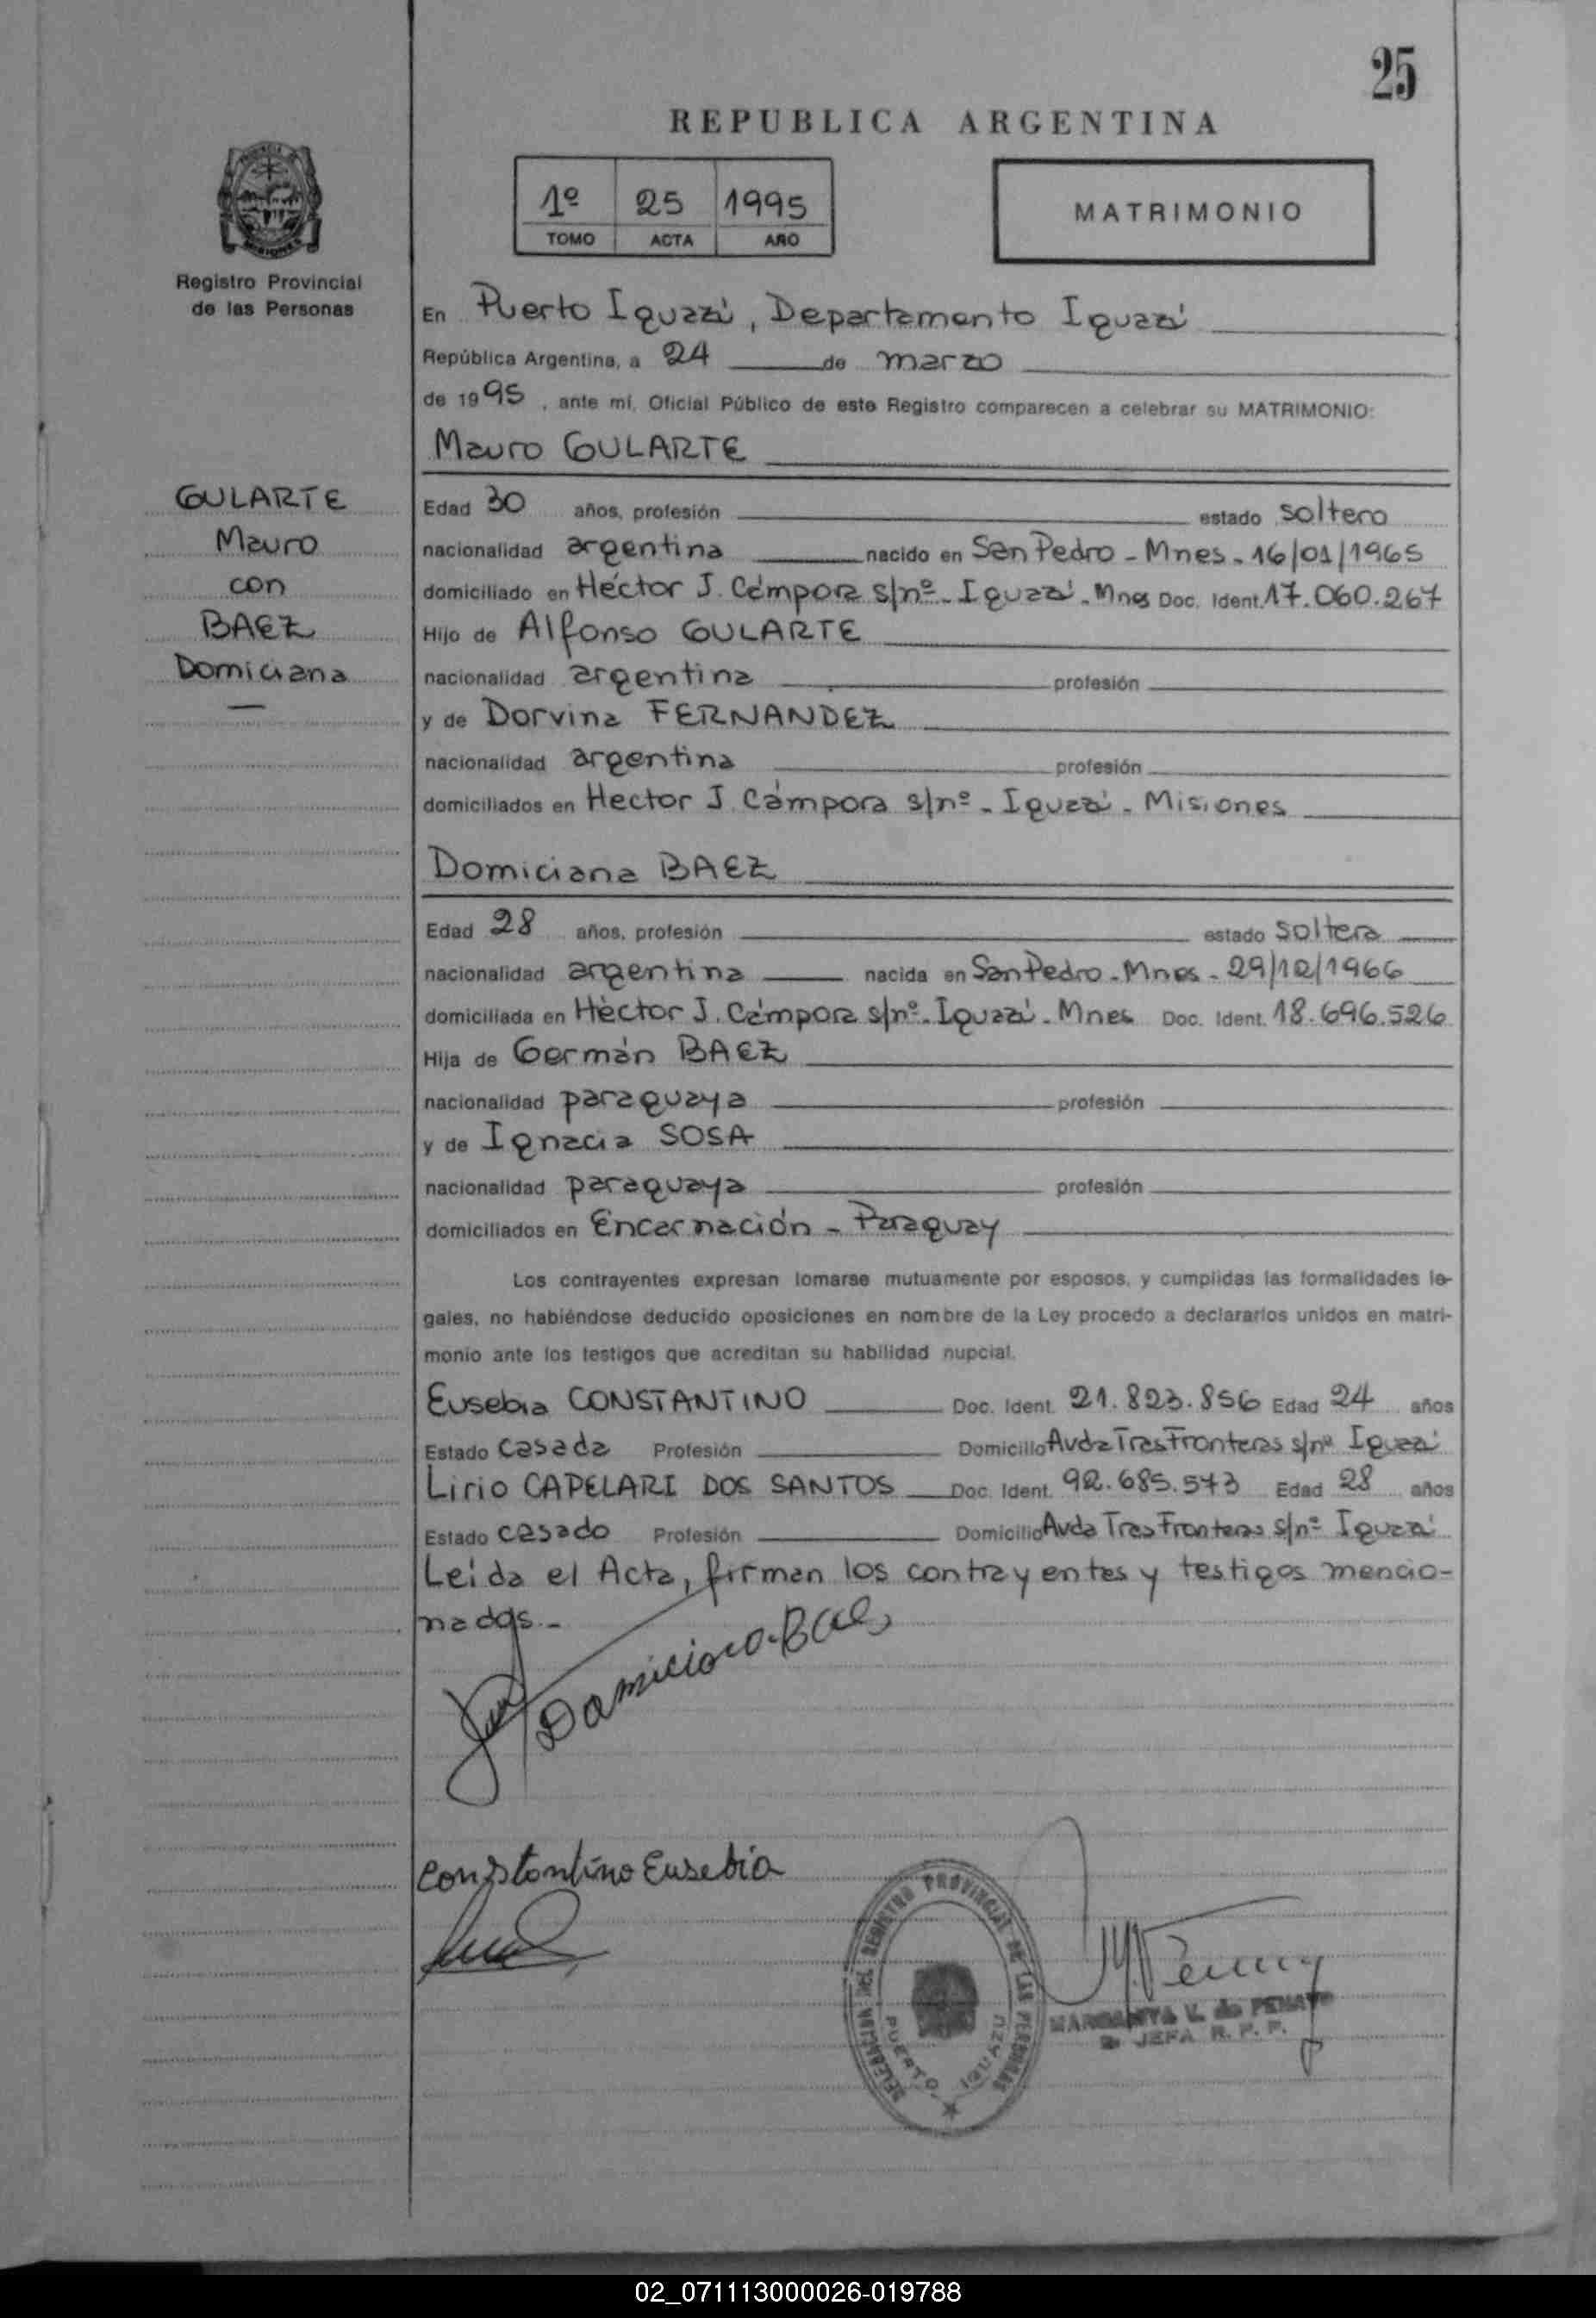 25
REPUBLICA ARGENTINA
1º 25 1995
TOMO ACTA AÑO
MATRIMONIO
Registro Provincial
de las Personas
En Puerto Iguazú, Departamento Iguazú
República Argentina, a 24 de marzo
de 1995, ante mí, Oficial Público de este Registro comparecen a celebrar su MATRIMONIO:
Mauro GULARTE
GULARTE
Mauro
con
BAEZ
Domiciana
Edad 30 años, profesión estado soltero
nacionalidad argentina nacido en San Pedro - Mnes - 16/01/1965
domiciliado en Héctor J. Cámpora s/nº - Iguazú - Mnes Doc. Ident. 17.060.267
Hijo de Alfonso GULARTE
nacionalidad argentina profesión
y de Dorvina FERNANDEZ
nacionalidad argentina profesión
domiciliados en Hector J. Cámpora s/nº - Iguazú - Misiones
Domiciana BAEZ
Edad 28 años, profesión estado soltera
nacionalidad argentina nacida en San Pedro - Mnes - 29/12/1966
domiciliada en Héctor J. Cámpora s/nº - Iguazú - Mnes Doc. Ident. 18.696.526
Hija de Germán BAEZ
nacionalidad paraguaya profesión
y de Ignacia SOSA
nacionalidad paraguaya profesión
domiciliados en Encarnación - Paraguay
Los contrayentes expresan tomarse mutuamente por esposos, y cumplidas las formalidades le-
gales, no habiéndose deducido oposiciones en nombre de la Ley procedo a declararlos unidos en matri-
monio ante los testigos que acreditan su habilidad nupcial.
Eusebia CONSTANTINO Doc. Ident. 21.823.856 Edad 24 años
Estado casada Profesión Domicilio Avda Tres Fronteras s/nº Iguazú
Lirio CAPELARI DOS SANTOS Doc. Ident. 92.685.573 Edad 28 años
Estado casado Profesión Domicilio Avda Tres Fronteras s/nº Iguazú
Leida el Acta, firman los contrayentes y testigos mencio-
nados.-
Domiciana Baez
Constantino Eusebia
REGISTRO PROVINCIAL DE LAS PERSONAS
PUERTO IGUAZU
MARGARITA V. de
JEFA R. P. P.
02_071113000026-019788